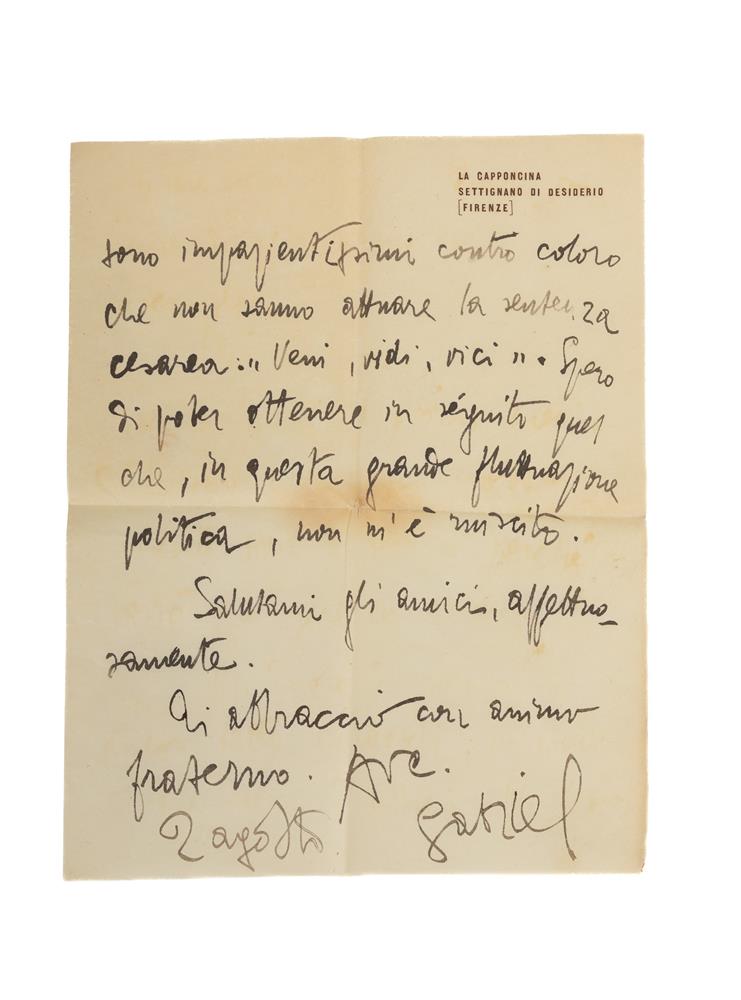 LA CAPPONCINA
SETTIGNANO DI DESIDERIO
[FIRENZE]
sono impazientissimi contro coloro
che non sanno attuare la sentenza
cesarea: „ Veni, vidi, vici ". Spero
di poter ottenere in séguito quel
che, in questa grande fluttuazione
politica, non m'è riuscito.
Salutami gli amici, affettuo-
samente.
Ti abbraccio con animo
fraterno. Ave.
2 agosto
Gabriel